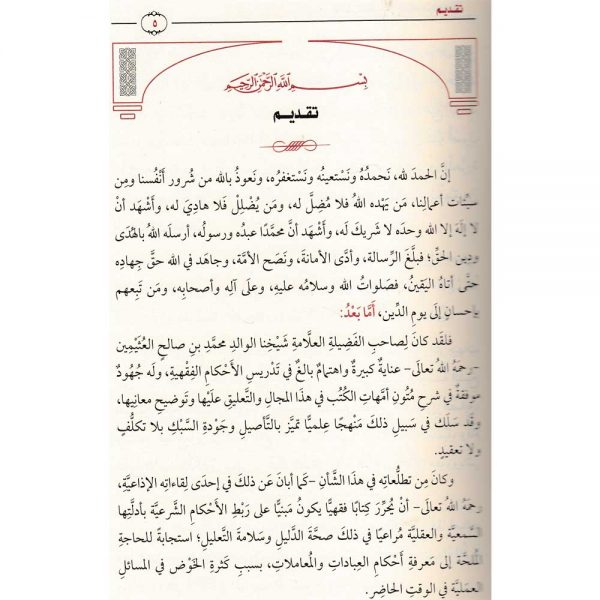 تقديم
٥
بِسْمِ اللَّهِ الرَّحْمَنِ الرَّحِيمِ
تقديم
إنَّ الحمدَ لله، نَحمدُهُ ونَستعينُه ونَستغفرُه، ونَعوذُ بالله من شُرور أَنْفُسنا ومِن
سيِّئات أعمالِنا، مَن يَهْده اللهُ فلا مُضِلَّ له، ومَن يُضْلِلْ فَلا هادِيَ له، وأَشْهَد أنْ
لا إلهَ إلا الله وحدَه لا شريكَ له، وأَشْهَد أنَّ محمَّدًا عبدُه ورسولُه، أرسلَه اللهُ بالهُدَى
ودِينِ الحقِّ؛ فبلَّغَ الرِّسالة، وأدَّى الأمانةَ، ونَصَح الأمَّة، وجاهَد في الله حقَّ جِهادِه
حتَّى أتاهُ اليَقينُ، فصَلواتُ الله وسلامُه عليهِ، وعلَى آلِه وأصحابِه، ومَن تَبِعهم
بإحسانٍ إلَى يومِ الدِّين، أَمَّا بَعْدُ:
فلقَد كانَ لِصاحبِ الفَضِيلةِ العلَّامةِ شَيْخِنا الوالدِ محمَّد بنِ صالحٍ العُثَيْمِين
-رحمَهُ اللهُ تعالَى- عنايةٌ كبيرةٌ واهتمامٌ بالغٌ في تَدْريسِ الأَحْكامِ الفِقْهيةِ، ولَه جُهُودٌ
موفقةٌ في شرحِ مُتُونِ أمَّهاتِ الكُتُبِ في هذَا المجالِ والتَّعليقِ عَلَيْها وتَوضيحِ معانِيها،
وقَد سَلَك في سَبيلِ ذلكَ مَنْهجًا عِلميًّا تَميَّز بالتَّأصيلِ وجَوْدةِ السَّبْكِ بلا تكلُّفٍ
ولا تعقيدٍ.
وكانَ مِن تطلُّعاتِه في هذَا الشَّأنِ -كَما أبانَ عَن ذلكَ في إحدَى لِقاءاتِه الإذاعيَّةِ،
رحمَهُ اللهُ تعالَى- أنْ يُحرِّرَ كِتابًا فقهيًّا يكونُ مَبنيًّا علَى رَبْطِ الأَحْكامِ الشَّرعيَّةِ بأدلَّتِها
السَّمعيَّةِ والعقليَّةِ مُراعيًا في ذلكَ صحَّةَ الدَّليلِ وسَلامةَ التَّعليلِ؛ استجابةً للحاجةِ
المُلحَّة إلَى مَعرفةِ أَحْكامِ العِباداتِ والمُعامَلات، بسببِ كَثْرةِ الخَوْض في المسائلِ
العمليَّة في الوقتِ الحاضِر.